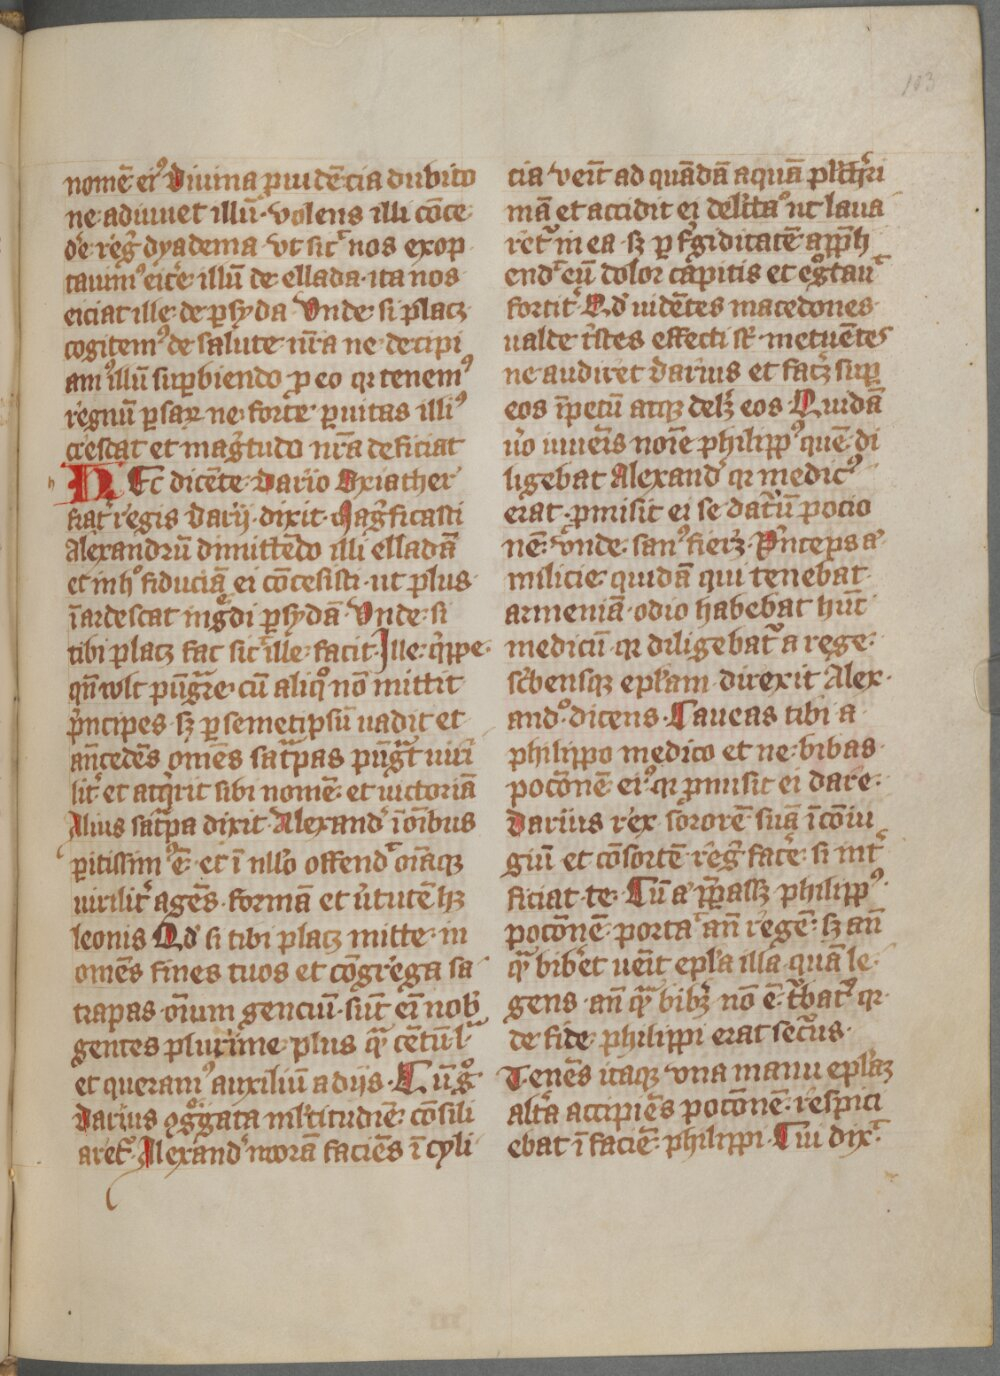 103
nomē ei᷒ Diuina ꝓuidēcia dubito
ne adiuuet illū· volens illi cōce
de᷑ reḡ dyadema vt sic᷑ nos exop
tauim᷒ eice᷑ illū de ellada· ita nos
eiciat ille de ꝑsyda Vnde si placꝫ
cogitem᷒ de salute nr̄a ne decipi
am᷒ illū suꝑbiendo ꝓ eo qr tenem᷒
regnū ꝑsaꝝ ne forte ꝑuitas illi᷒
crescat et mag̑tudo nr̄a deficiat
HEc dicēte Dario Oxiather
frat᷑ regis Darij· dixit· Mag̑ficasti
Alexandrū dimittēdo illi elladā
et in hᵒ fiduciā ei cōcesisti· ut plus
īardescat ing̑di ꝑsydā Vnde si
tibi placꝫ fac sic᷑ ille facit· Ille q̑ppe·
qn̄ vlt pūg̑re· cū aliqᵒ nō mittit
p̑ncipes· sꝫ ꝑ semetipsū uadit et
an̄cedēs omēs sat᷑pas pūg̑t uiri
lit᷑ et acq̑rit sibi nomē et uictoriā
Alius sat᷑pa dixit· Alexand᷑ ī oībus
ꝑitissim᷒ ē· et ī nllo offend᷑ oīaqꝫ
uirilit᷑ agēs· formā et u᷑tutē hꝫ
leonis Qd̕ si tibi placꝫ mitte in
omēs fines tuos et cōgrega sa
trapas· oīum genciū· sūt eī nob̕
gentes plurime plus qᷓ cētū· lᷓ
et queram᷒ auxiliū a dijs· Cūgᵒ
Darius ꝯgᵒgata ml̕titudiē cōsili
aret᷑· Alexand᷑ morā faciēs ī cyli
cia veīt ad quādā aquā pl̕ch̕ri
mā et accidit ei del̕cta᷒ ut laua
ret᷑ in ea· sꝫ ꝑ f᷑giditatē appħ
end᷑ eū dolor capitis et eg̑tau᷑
fortit᷑ Qd̕ uidētes macedones
ualde t᷑stes effecti sī· metuētes
ne audiret Darius et facꝫ suꝑ
eos īpetū atqꝫ delꝫ eos· Quidā
u᷑o iuueīs noīe philipp᷒ quē di
ligebat Alexand᷑ qr medic᷒
erat· ꝓmisit ei se datuꝝ pocio
nē· vnde san᷒ fierꝫ· P᷑nceps aͣ
milicie· quidā qui tenebat
armeniā· odio habebat hūc
medicū· qr diligebat᷑ a rege·
sc᷑bensqꝫ epl̄am· direxit Alex·
andᵒ· dicens· Caueas tibi a
philippo medico et ne bibas
pocōnē ei᷒· qr ꝓmisit ei dare·
Darius rex sororē suā ī cōiu
giū et cōsortē reg̑ face᷑· si int᷑
ficiat te· Cū aͣ p̄parassꝫ philipp᷒
pocōnē· porta᷑ an̄ regē· sꝫ an̄
qᷓ bib᷑et ueīt epl̄a illa· quā le·
gens· an̄ qᷓ bibꝫ nō ē· t᷑bat᷒ qr
de fide· philippi erat sec᷑us·
Tenēs itaqꝫ vna manu epl̄aꝫ
alt᷑a accipiēs pocōnē· respici
ebat ī faciē philippi· Cui dix᷑·